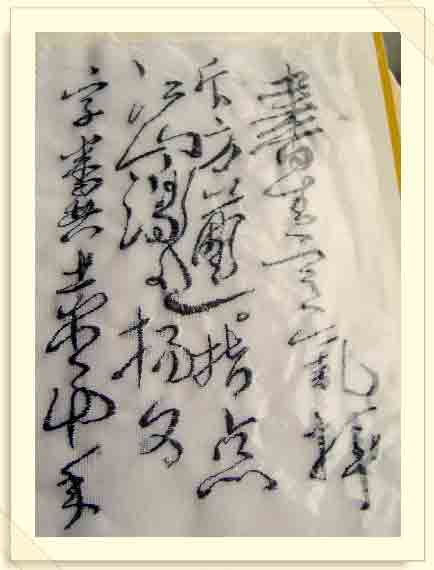 書生意氣揮
斥方遒。指点
江山激揚文
字糞土當年